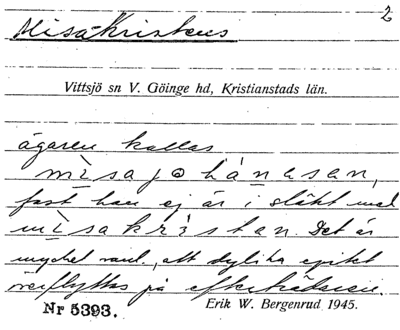 2
Misäkristens
Vittsjö sn V. Göinge hd, Kristianstads län.
ägaren kallas
misajohánasan,
fast han ej är i släkt med
misakristan. Det är
mycket vanl., att dylika epitet
överflyttas på efterträdaren.
Nr 5393. Erik W. Bergenrud 1945.